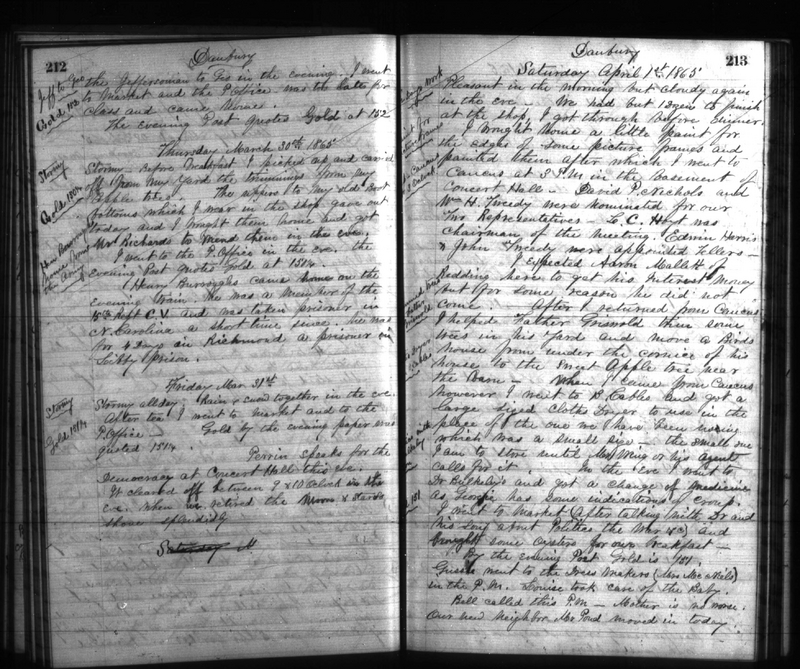 212
Danbury
Jeff to Geo
Gold 152
the Jeffersonian to Geo in the evening. I went
to Market and the P. Office was too late for
Class and came home.
The Evening Post quotes Gold at 152
Thursday March 30th 1865
Stormy
Stormy before breakfast I picked up and carried
off from my Yard the trimmings from my
Apple trees. The uppers to my old Boot
Gold 151¼
bottoms which I wear in the shop gave out
today and I brought them home and got
Mr Richards to mend them in the eve.
I went to the P. Office in the eve. the
Evening Post quotes Gold at 151¼
Henry Burroughs
came home from
the Army
Henry Burroughs came home on the
evening train. He was a member of the
15th Regt C.V. and was taken prisoner in
N. Carolina a short time since. He was
for 4 days in Richmond a prisoner in
Libby prison.
Friday Mar 31st
Stormy
Stormy all day. Rain & snow together in the eve.
After tea I went to market and to the
P. Office Gold by the evening paper was
Gold 151¼
quoted 151¼.
Perrin speaks for the
Democracy at Concert Hall this eve.
It cleared off between 9 & 10 O'clock in the
eve. when we retired the Moon & stars
shone splendidly
Saturday M
213
Danbury
Saturday April 1st 1865
Pleasant in the morning but cloudy again
in the eve. We had but 13 dozen to finish
at the shop, I got through before dinner.
I brought home a little paint for
the edges of some picture frames and
painted them after which I went to
Caucus at 3 P.M in the basement of
Concert Hall. David P. Nichols and
Wm H. Tweedy were nominated for our
Two Representatives. L. C. Hoyt was
Chairman of the Meeting. Edwin Harris
& John Tweedy were appointed Tellers
I Expected Aaron Mallett of
Redding here to get his Interest Money
but for some reason he did not
come After I returned from Caucus
I helped Father Griswold trim some
trees in his Yard and move a Birds
house from under the cornice of his
house to the sweet Apple tree near
the Barn. When I came from Caucus
however I went to B. Cables and got a
large sized Cloths Dryer to use in the
place of the one we have been using
which was a small size. the small one
I am to store until or his agent
calls for it. In the eve I went to
Dr Bulkeley's and got a change of medicine
as Georgie has some indications of Croup.
I went to Market (After talking with Dr and
his son about Politics the War &c) and
brought some oysters for our breakfast
By the evening Post Gold is 151.
Gussie went to the Dress Makers (Mrs Mc Neils)
in the P.M. Louise took care of the Baby.
Bell called this P.M. Mother is no worse.
Our new neighbor Mr Pond moved in today.